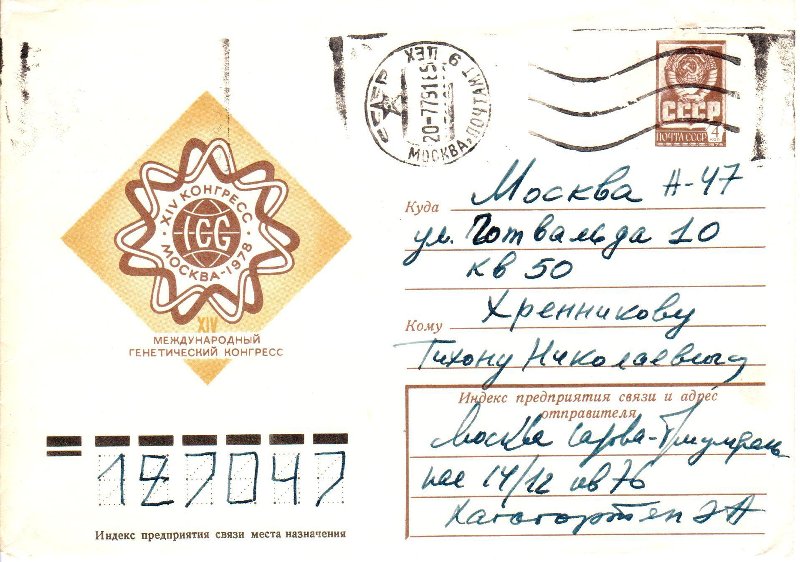 XIV КОНГРЕСС
ICG
МОСКВА-1978
XIV
МЕЖДУНАРОДНЫЙ
ГЕНЕТИЧЕСКИЙ КОНГРЕСС
МОСКВА, ПОЧТАМТ 9 ЦЕХ
20-7791
СССР
ПОЧТА СССР 4
Куда Москва А-47
ул. Готвальда 10
кв 50
Хренникову
Кому
Тихону Николаевичу
Индекс предприятия связи и адрес
отправителя
Москва Садова-Триумфаль
ная 14/12 кв 76
ЭА
127047
Индекс предприятия связи места назначения